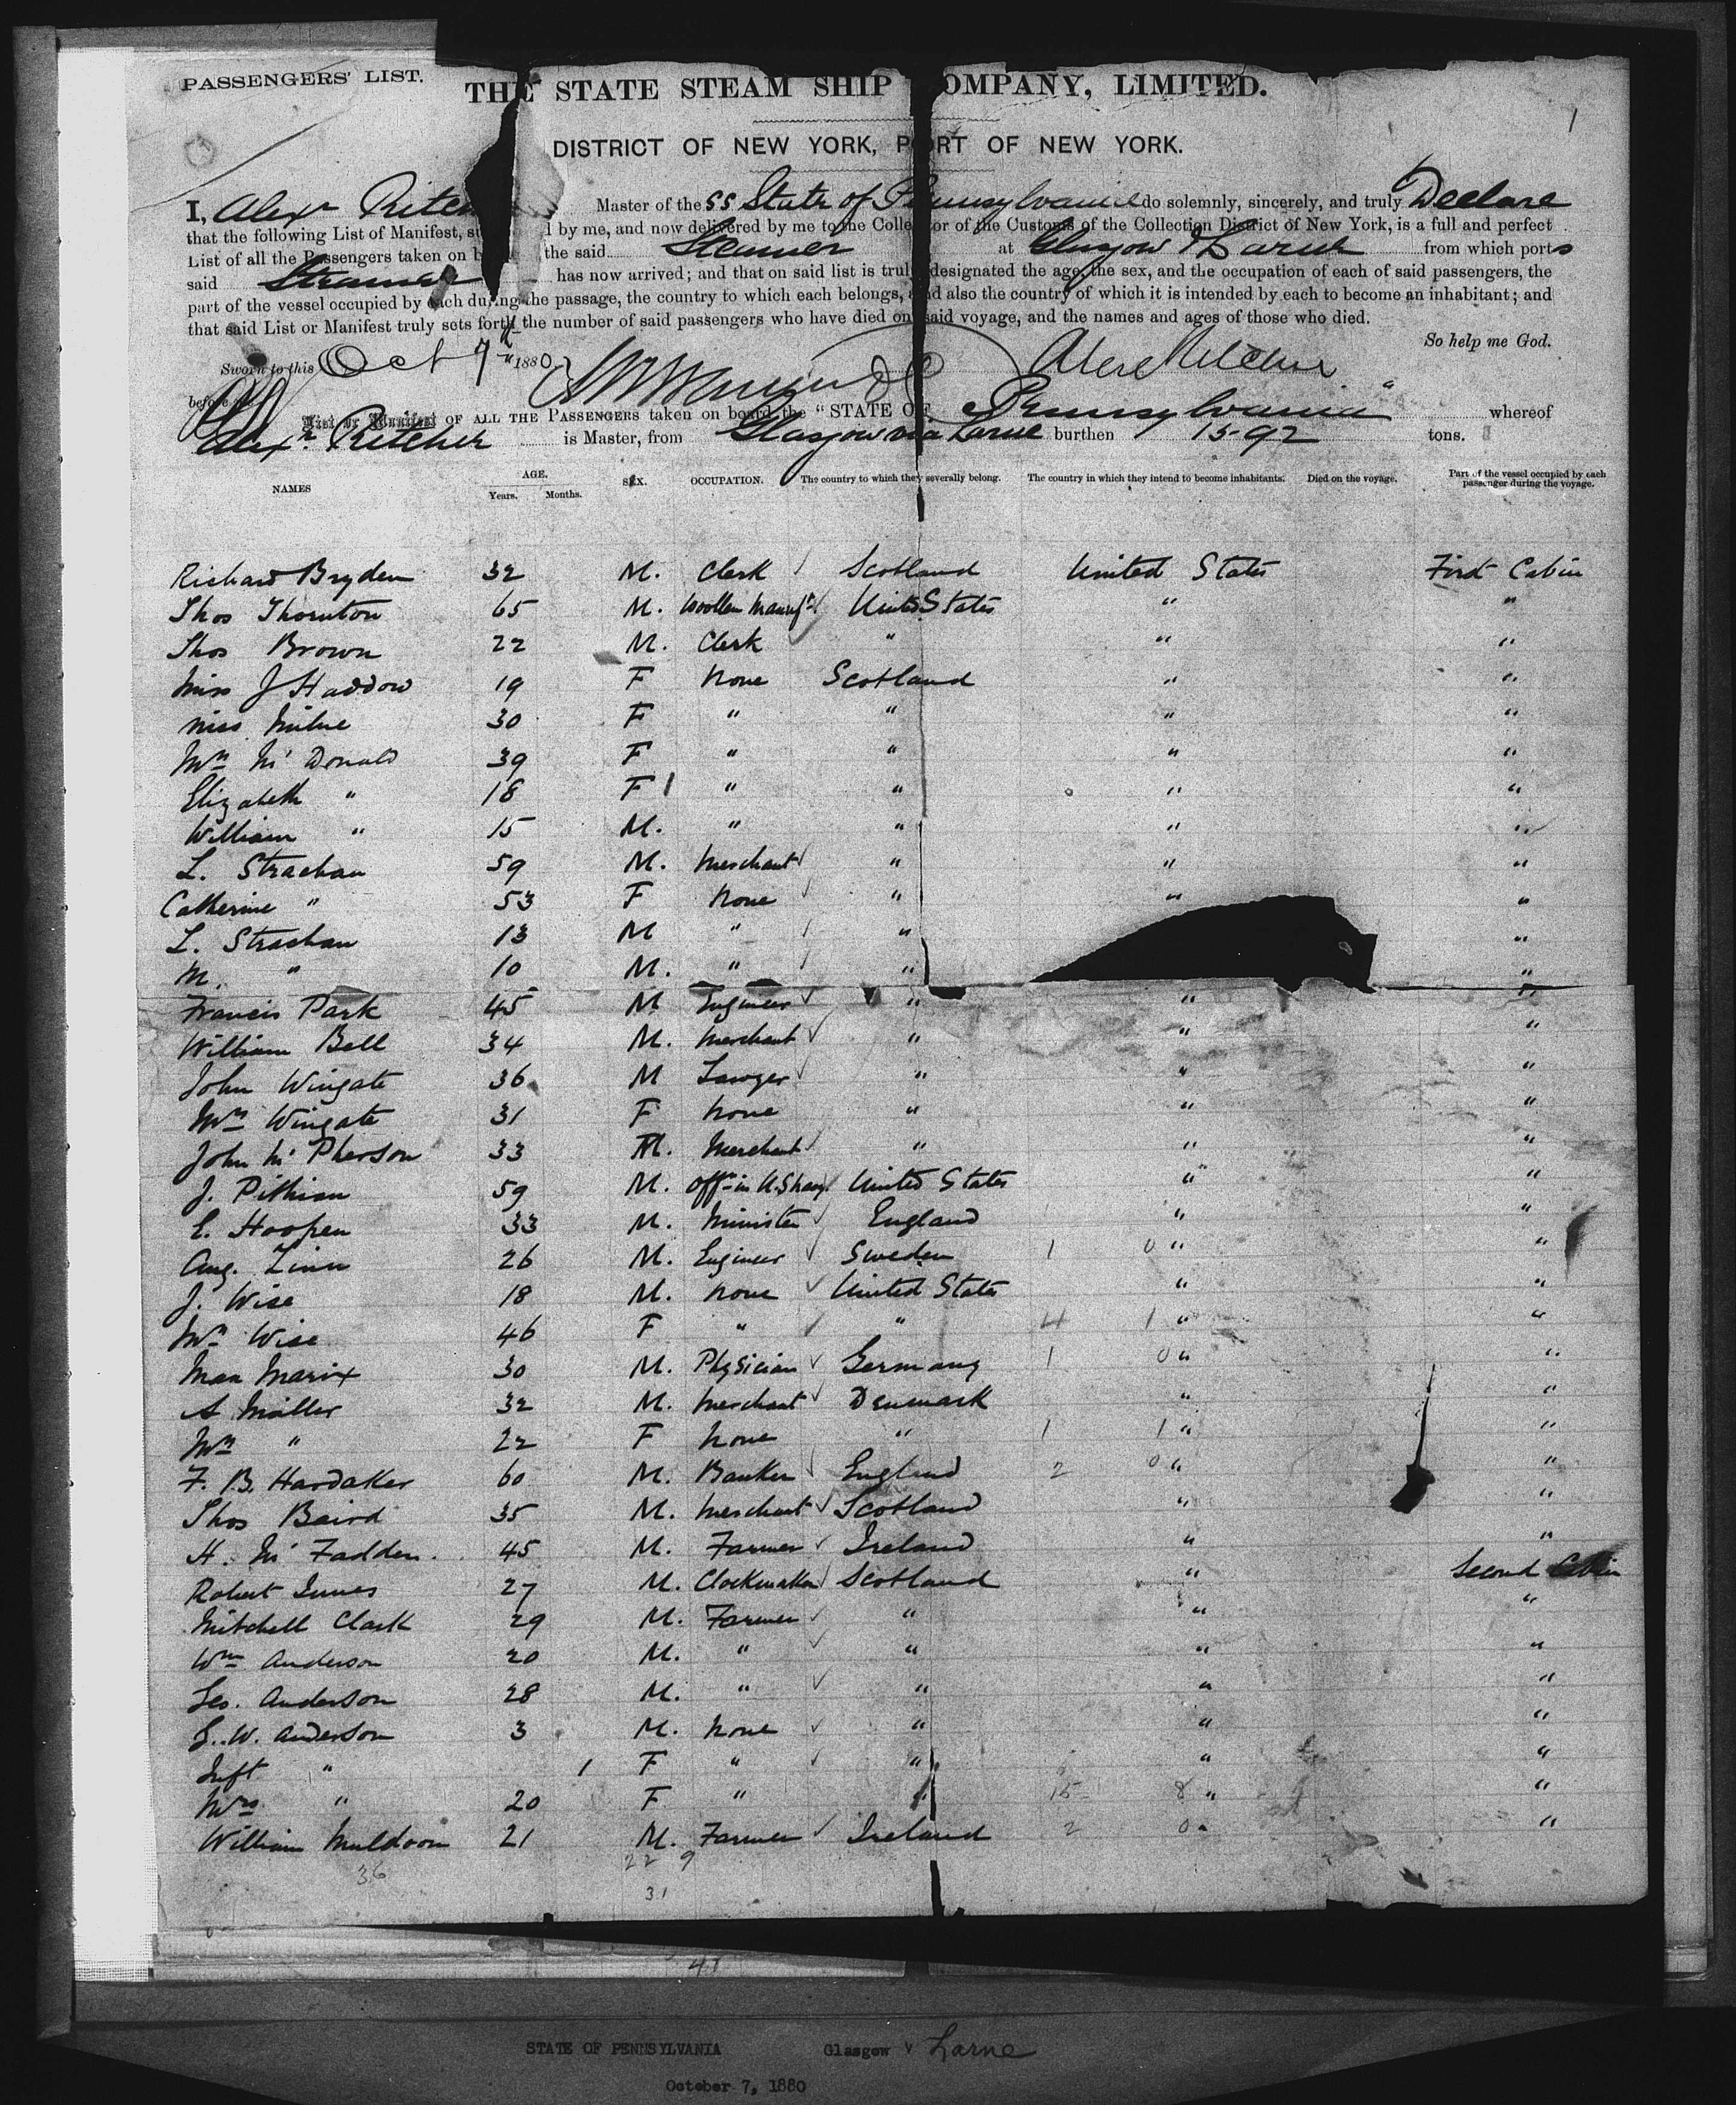 PASSENGERS' LIST.
1
THE STATE STEAM SHIP COMPANY, LIMITED.
DISTRICT OF NEW YORK, PORT OF NEW YORK.
I, Alexr Ritch Master of the SS State of Pennsylvania do solemnly, sincerely, and truly Declare
that the following List of Manifest, s d by me, and now delivered by me to the Collector of the Customs of the Collection District of New York, is a full and perfect
List of all the Passengers taken on b the said Steamer at Glasgow & Larne from which ports
said Steamer has now arrived; and that on said list is truly designated the age, the sex, and the occupation of each of said passengers, the
part of the vessel occupied by each during the passage, the country to which each belongs, and also the country of which it is intended by each to become an inhabitant; and
that said List or Manifest truly sets forth the number of said passengers who have died on said voyage, and the names and ages of those who died.
So help me God.
Sworn to this Oct 7th 1880
before me
List or Manifest OF ALL THE PASSENGERS taken on board the "STATE OF Pennsylvania" whereof
Alexr. Ritchie is Master, from Glasgow via Larne burthen 15-92 tons.
NAMES AGE. Years. Months. SEX. OCCUPATION. The country to which they severally belong. The country in which they intend to become inhabitants. Died on the voyage. Part of the vessel occupied by each passenger during the voyage.
Richard Bryden 32 M. Clerk Scotland United States First Cabin
Thos Thornton 65 M. Woollen Manufr United States " "
Thos Brown 22 M. Clerk " " "
Miss J Haddow 19 F None Scotland " "
Miss Milne 30 F " " " "
Mrs McDonald 39 F " " " "
Elizabeth " 18 F " " " "
William " 15 M. " " " "
L. Strachan 59 M. Merchant " " "
Catherine " 53 F None " " "
L. Strachan 13 M " " "
M. " 10 M. " " "
Francis Park 45 M Engineer " " "
William Bell 34 M. Merchant " " "
John Wingate 36 M Lawyer " " "
Mrs Wingate 31 F None " " "
John McPherson 33 M. Merchant " " "
J. Pithian 59 M. Offr in U.S Navy United States " "
E. Hoopen 33 M. Minister England " "
Aug. Zinn 26 M. Engineer Sweden 1 0 " "
J. Wise 18 M. None United States " "
Mrs Wise 46 F " " 4 1 " "
Max Marix 30 M. Physician Germany 1 0 " "
A Möller 32 M. Merchant Denmark " "
Mrs " 22 F None " 1 1 " "
F. B. Hardaker 60 M. Banker England 2 0 " "
Thos Baird 35 M. Merchant Scotland " "
H. McFadden 45 M. Farmer Ireland " "
Robert Innes 27 M. Clockmaker Scotland " Second Cabin
Mitchell Clark 29 M. Farmer " " "
Wm Anderson 20 M. " " " "
Geo. Anderson 28 M. " " " "
G. W. Anderson 3 M. None " " "
Inft " 1 F " " " "
Mrs " 20 F " " 15 8 " "
William Muldoon 21 M. Farmer Ireland 2 0 " "
36 22 9
31
41
STATE OF PENNSYLVANIA Glasgow v Larne
October 7, 1880